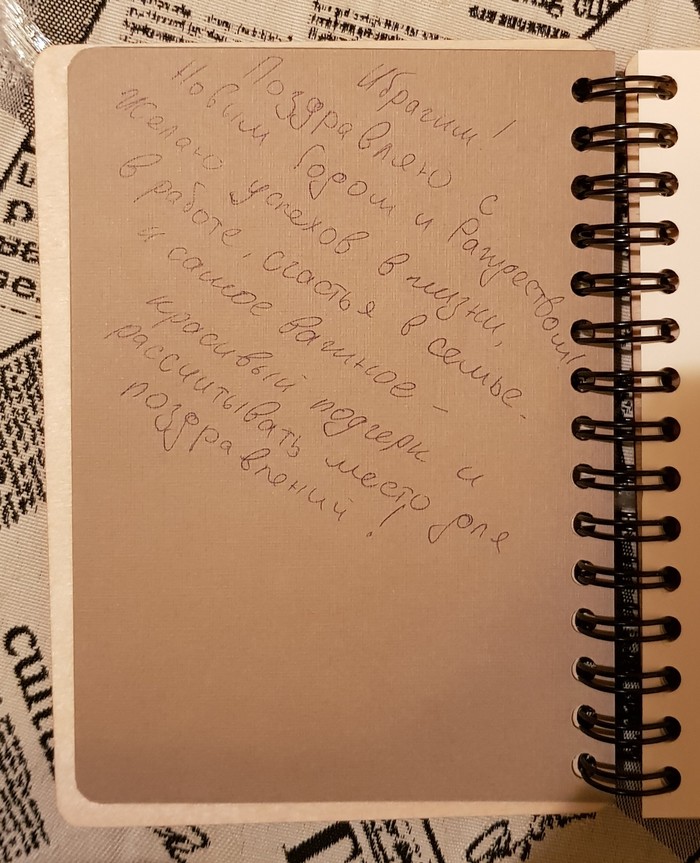 Ибрагим!
Поздравляю с
Новым Годом и Рождеством!!
Желаю успехов в жизни,
в работе, счастья в семье.
и самое важное -
красивый подчерк и
рассчитывать место для
поздравлений!